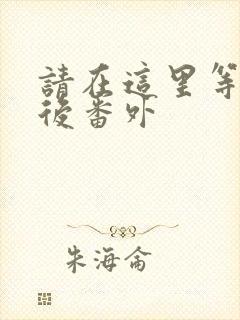 請在這里等
後番外
朱海侖